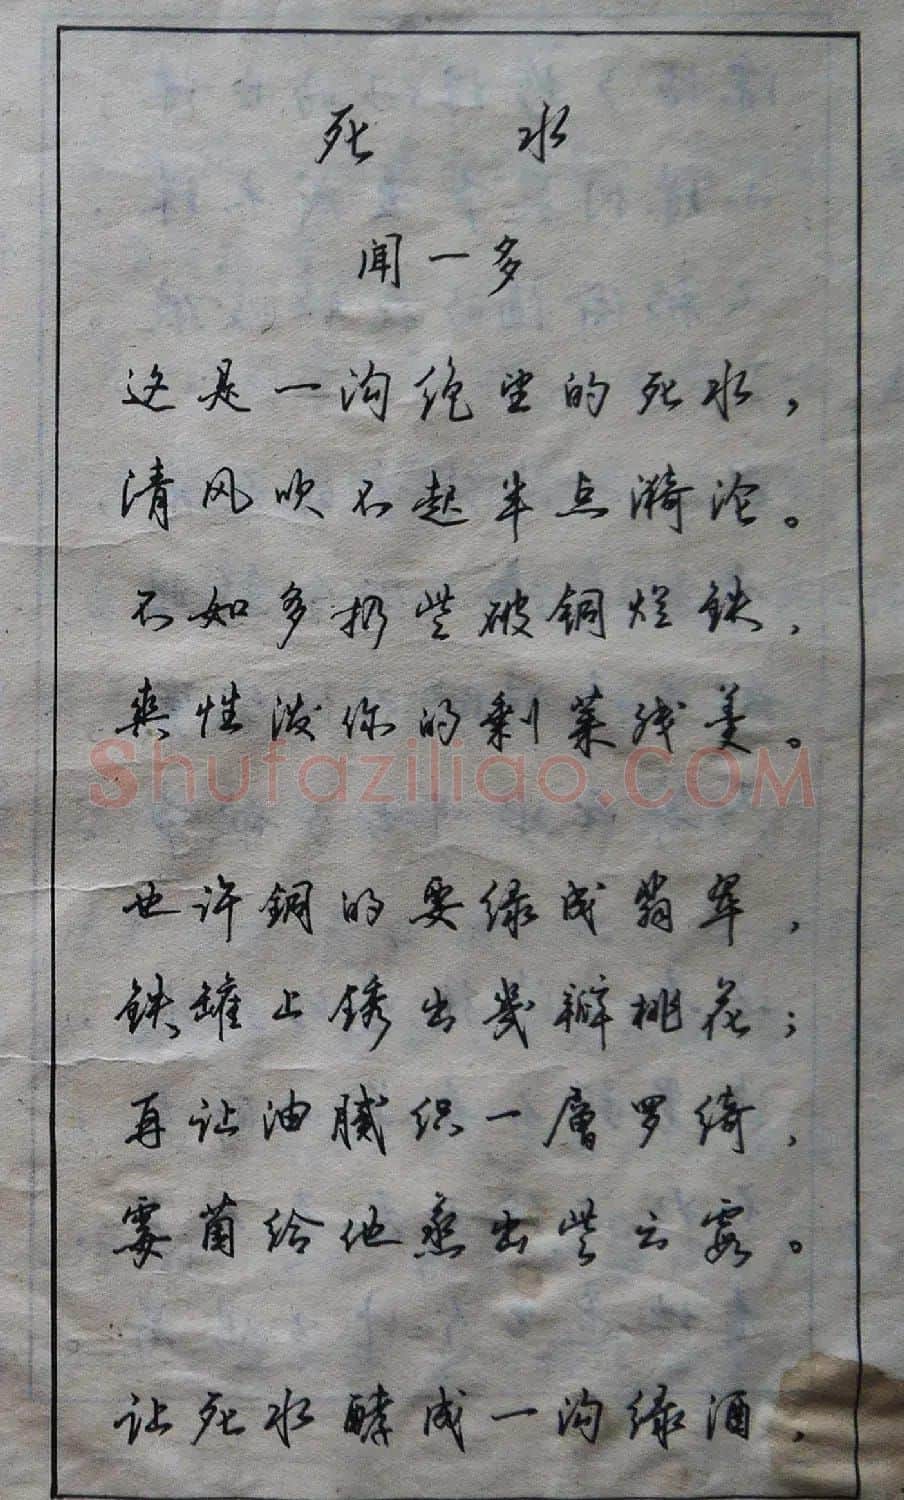 死水
闻一多
这是一沟绝望的死水，
清风吹不起半点漪沦。
不如多扔些破铜烂铁，
爽性泼你的剩菜残羹。
Shufaziliao.COM
也许铜的要绿成翡翠，
铁罐上锈出几瓣桃花；
再让油腻织一层罗绮，
霉菌给他蒸出些云霞。
让死水酵成一沟绿酒，